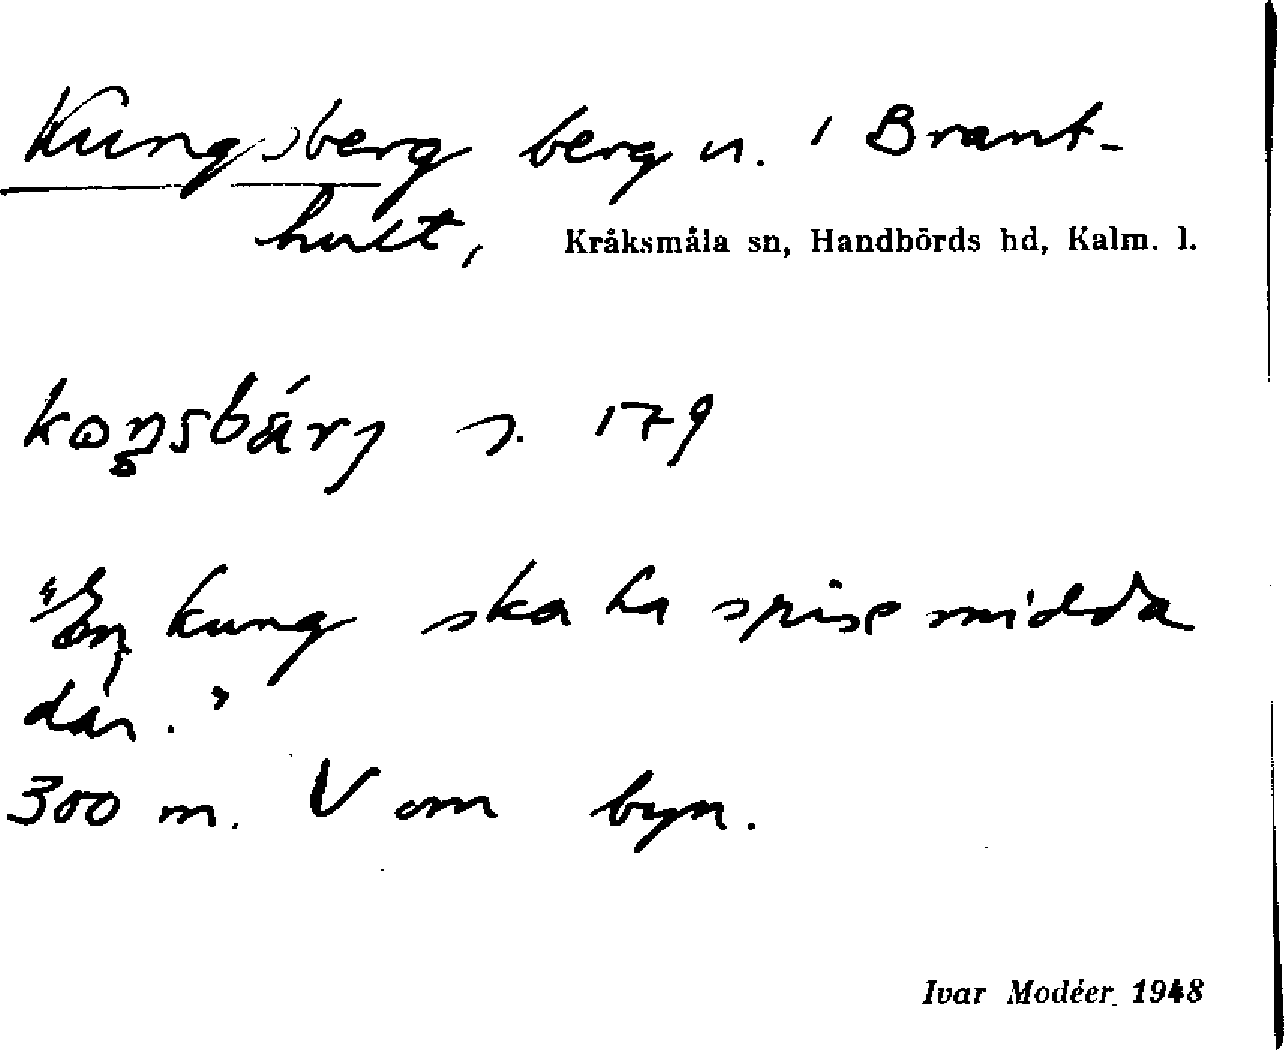 Kungsberg berg n. i Brant-
hult, Kråksmåla sn, Handbörds hd, Kalm. l.
koŋsbárj s. 179
"En kung ska ha spise midda
där."
300 m. V om byn.
Ivar Modéer 1948